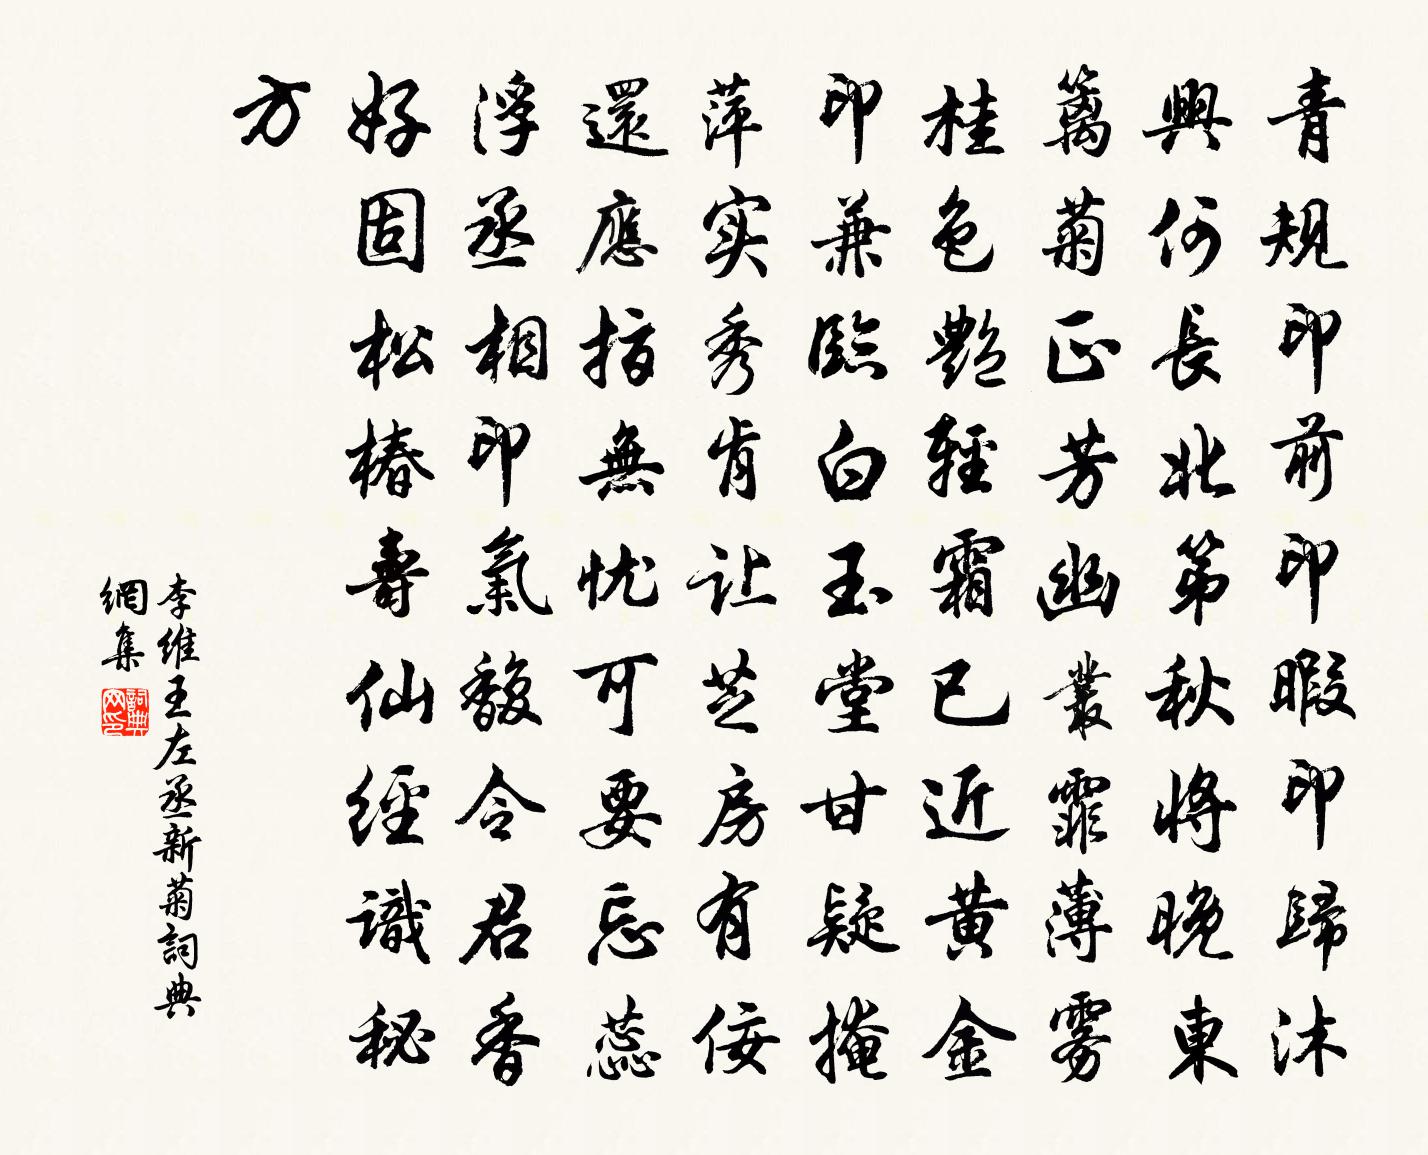 青規印前印暇印歸沐
興何長北第秋將晚東
籬菊正芳幽叢霏薄雾
桂色艷輕霜已近黄金
印兼臨白玉堂甘疑掩
萍实秀肯让芝房有佞
還應指無忧可要忘蕊
浮丞相印氣馥令君香
好固松椿壽仙經識秘
方
李维王左丞新菊詞典
網集
詞典网印